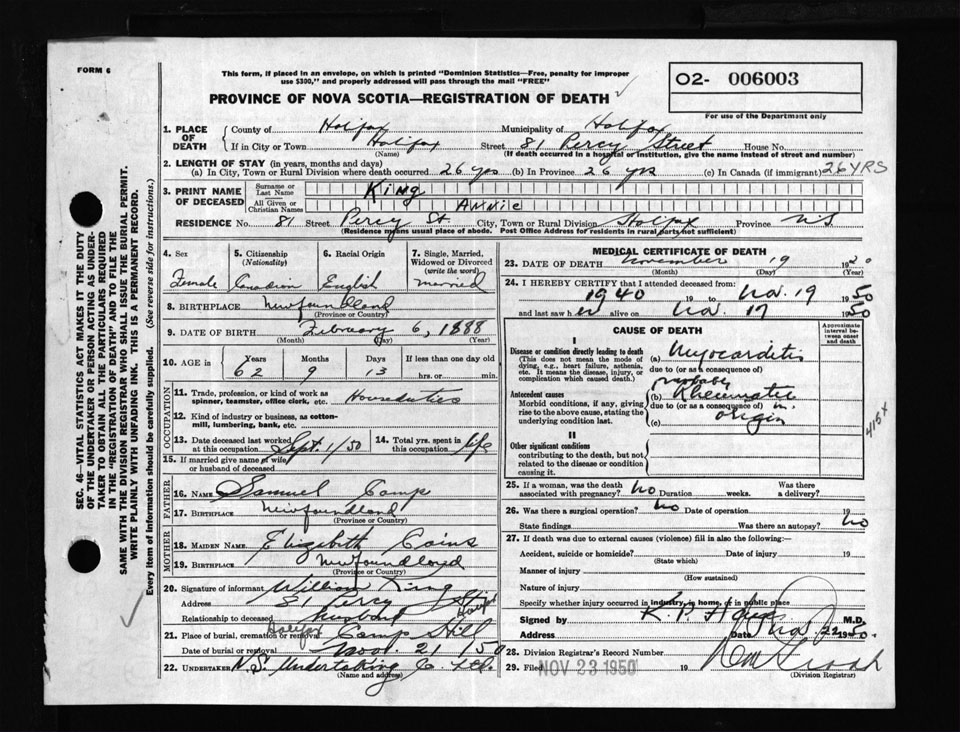 FORM 6
This form, if placed in an envelope, on which is printed "Dominion Statistics—Free, penalty for improper
use $300," and properly addressed will pass through the mail "FREE"
PROVINCE OF NOVA SCOTIA—REGISTRATION OF DEATH
02- 006003
For use of the Department only
SEC. 46—VITAL STATISTICS ACT MAKES IT THE DUTY
OF THE UNDERTAKER OR PERSON ACTING AS UNDER-
TAKER TO OBTAIN ALL THE PARTICULARS REQUIRED
IN THE "REGISTRATION OF DEATH" AND TO FILE THE
SAME WITH THE DIVISION REGISTRAR WHO SHALL ISSUE THE BURIAL PERMIT.
WRITE PLAINLY WITH UNFADING INK. THIS IS A PERMANENT RECORD.
Every item of information should be carefully supplied. (See reverse side for instructions.)
1. PLACE OF DEATH County of Halifax Municipality of Halifax
If in City or Town Halifax Street 81 Percy Street House No.
(Name) (If death occurred in a hospital or institution, give the name instead of street and number)
2. LENGTH OF STAY (in years, months and days)
(a) In City, Town or Rural Division where death occurred 26 yrs (b) In Province 26 yrs (c) In Canada (if immigrant) 26 YRS
3. PRINT NAME OF DECEASED Surname or Last Name King
All Given or Christian Names Annie
RESIDENCE No. 81 Street Percy St. City, Town or Rural Division Halifax Province N.S.
(Residence means usual place of abode. Post Office Address for residents in rural parts not sufficient)
4. Sex 5. Citizenship (Nationality) 6. Racial Origin 7. Single, Married, Widowed or Divorced (write the word)
Female Canadian English married
8. BIRTHPLACE Newfoundland
(Province or Country)
9. DATE OF BIRTH February 6, 1888
(Month) (Day) (Year)
10. AGE in Years Months Days If less than one day old
62 9 13 hrs. or min.
OCCUPATION
11. Trade, profession, or kind of work as spinner, teamster, office clerk, etc. Houseduties
12. Kind of industry or business, as cotton-mill, lumbering, bank, etc.
13. Date deceased last worked at this occupation Sept. 1/50 14. Total yrs. spent in this occupation life
15. If married give name of wife or husband of deceased
FATHER
16. NAME Samuel Camp
17. BIRTHPLACE Newfoundland
(Province or Country)
MOTHER
18. MAIDEN NAME Elizabeth Cains
19. BIRTHPLACE Newfoundland
(Province or Country)
20. Signature of informant William King
Address 81 Percy St. Halifax
Relationship to deceased husband
21. Place of burial, cremation or removal Halifax Camp Hill
Date of burial or removal Nov. 21/50
22. UNDERTAKER N.S. Undertaking Co. Ltd.
(Name and address)
MEDICAL CERTIFICATE OF DEATH
23. DATE OF DEATH November 19 1950
(Month) (Day) (Year)
24. I HEREBY CERTIFY that I attended deceased from:
1940 19 to Nov. 19 1950
and last saw her alive on Nov. 17 1950
CAUSE OF DEATH
Approximate interval between onset and death
I
Disease or condition directly leading to death (a) Myocarditis
(This does not mean the mode of dying, e.g., heart failure, asthenia, etc. It means the disease, injury, or complication which caused death.)
due to (or as a consequence of)
Antecedent causes (b) probably Rheumatic
Morbid conditions, if any, giving rise to the above cause, stating the underlying condition last.
due to (or as a consequence of) in
(c) origin
416X
II
Other significant conditions
contributing to the death, but not related to the disease or condition causing it.
25. If a woman, was the death associated with pregnancy? no Duration weeks. Was there a delivery?
26. Was there a surgical operation? no Date of operation 19
State findings Was there an autopsy? no
27. If death was due to external causes (violence) fill in also the following:—
Accident, suicide or homicide? Date of injury 19
(State which)
Manner of injury
(How sustained)
Nature of injury
Specify whether injury occurred in industry, in home, or in public place
Signed by M.D.
Address Date Nov. 22 1950.
28. Division Registrar's Record Number
29. Filed NOV 23 1950 19
(Division Registrar)